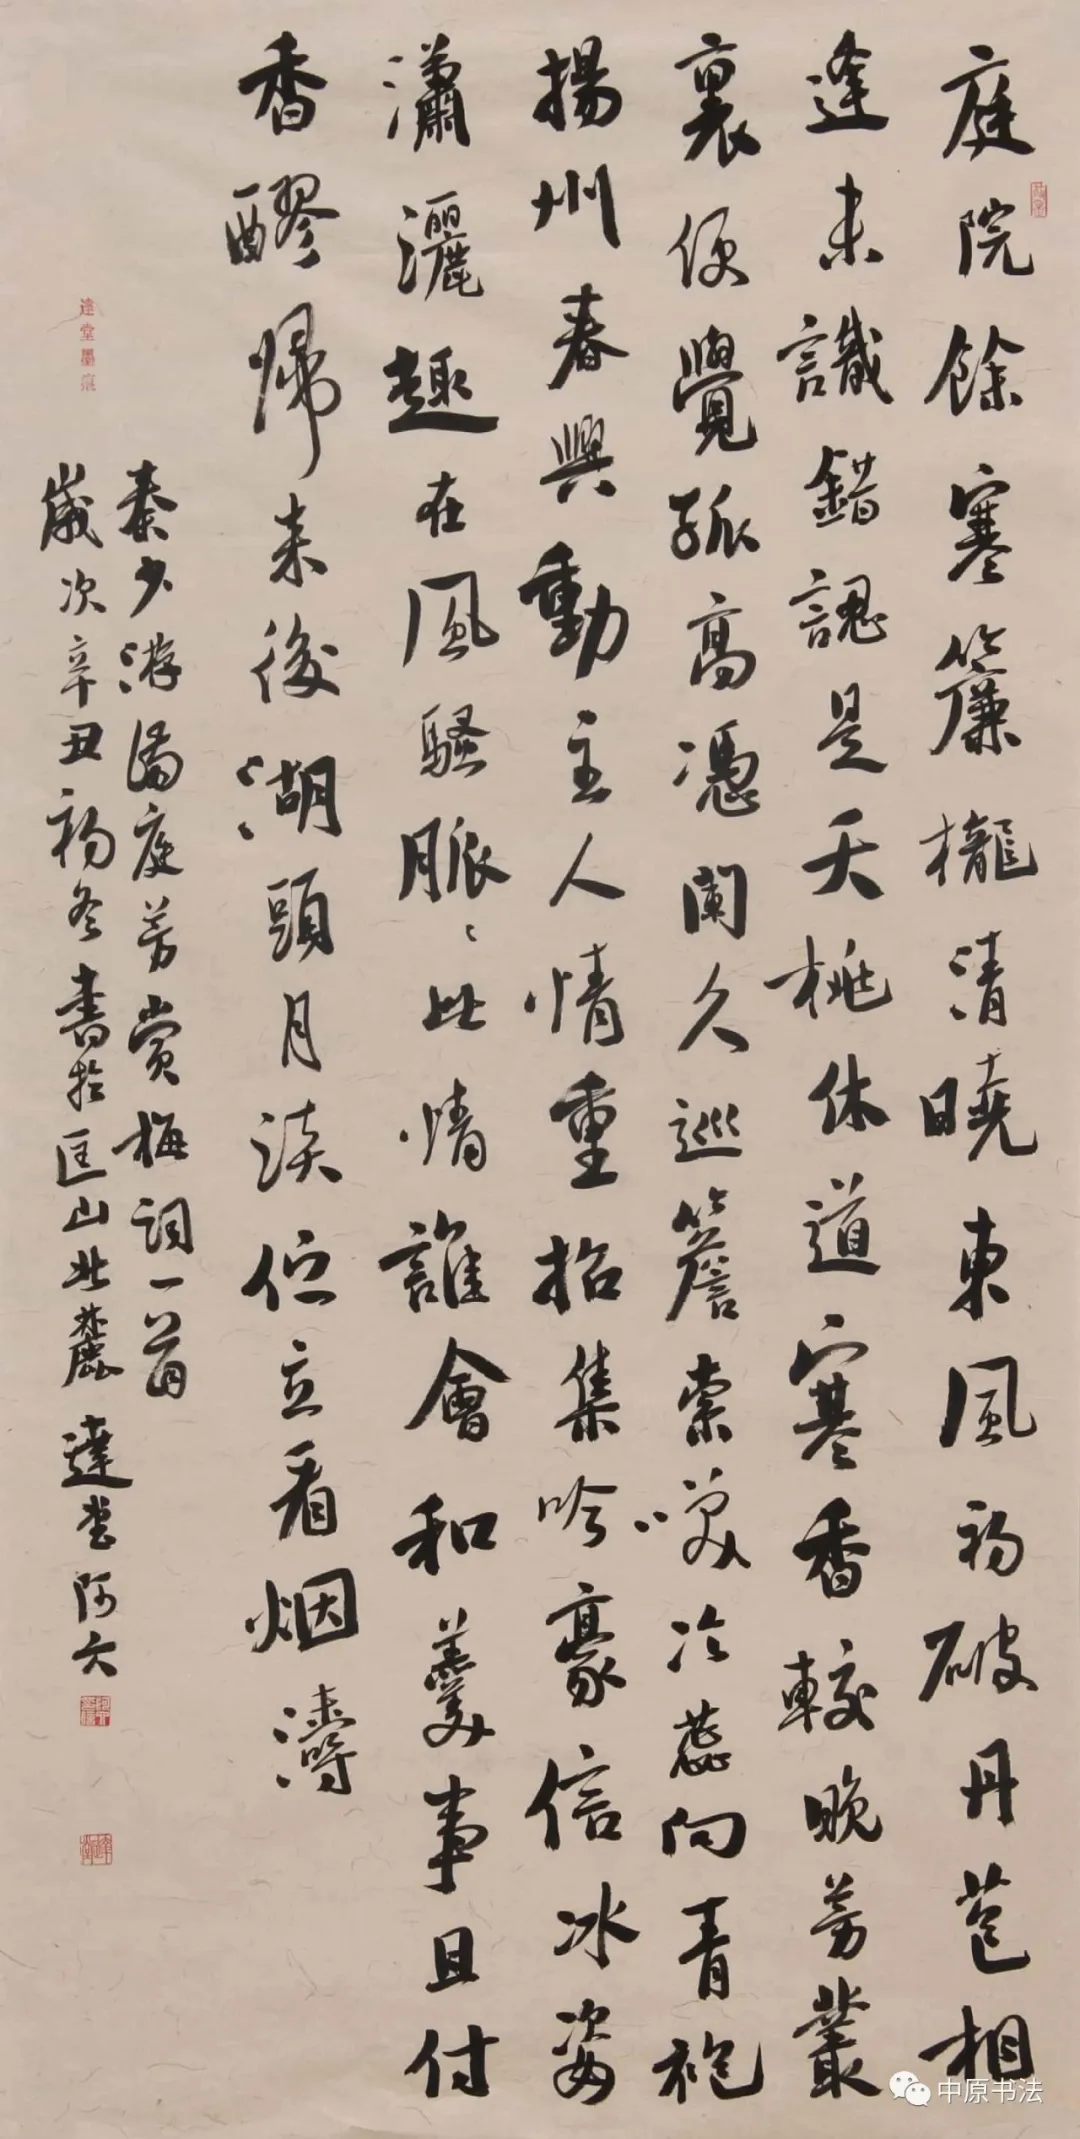 庭院餘寒簾櫳清曉東風初破丹苞相
逢未識錯認是夭桃休道寒香較晚芳叢
裏便覺孤高憑闌久巡簷索笑冷蕊向青袍
揚州春興動主人情重招集吟豪信冰姿
瀟灑趣在風騷脈〻此情誰會和羹事且付
香醪歸來後湖頭月淡佇立看烟濤
秦少游滿庭芳賞梅詞一首
歲次辛丑初冬書於匡山北麓達堂阿六
達堂墨痕
中原书法